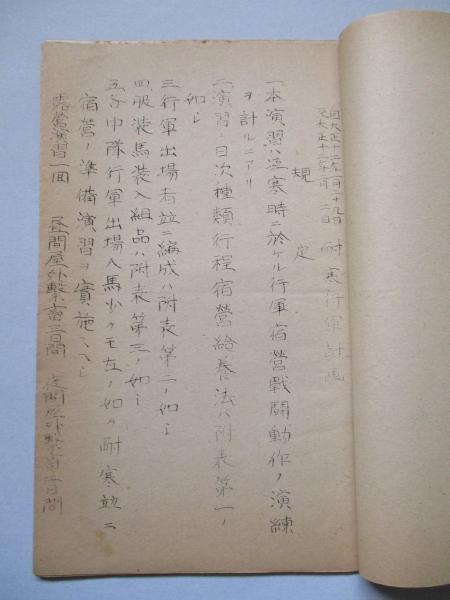 自大正十二年一月二十九日
至大正十二年二月二日 耐寒行軍計画
規定
一本演習ハ沍寒時ニ於ケル行軍宿營戰鬪動作ノ演練
ヲ計ルニアリ
二演習ノ日次種類行程宿營給養法ハ附表第一ノ
如シ
三行軍出場者並ニ編成ハ附表第二ノ如シ
四服装馬装入組品ハ附表第三ノ如シ
五各中隊行軍出場人馬少クモ左ノ如ク耐寒並ニ
宿營ノ準備演習ヲ實施スヘシ
露營演習一回 昼間屋外繋畜三日間 夜間屋外繋畜二日間